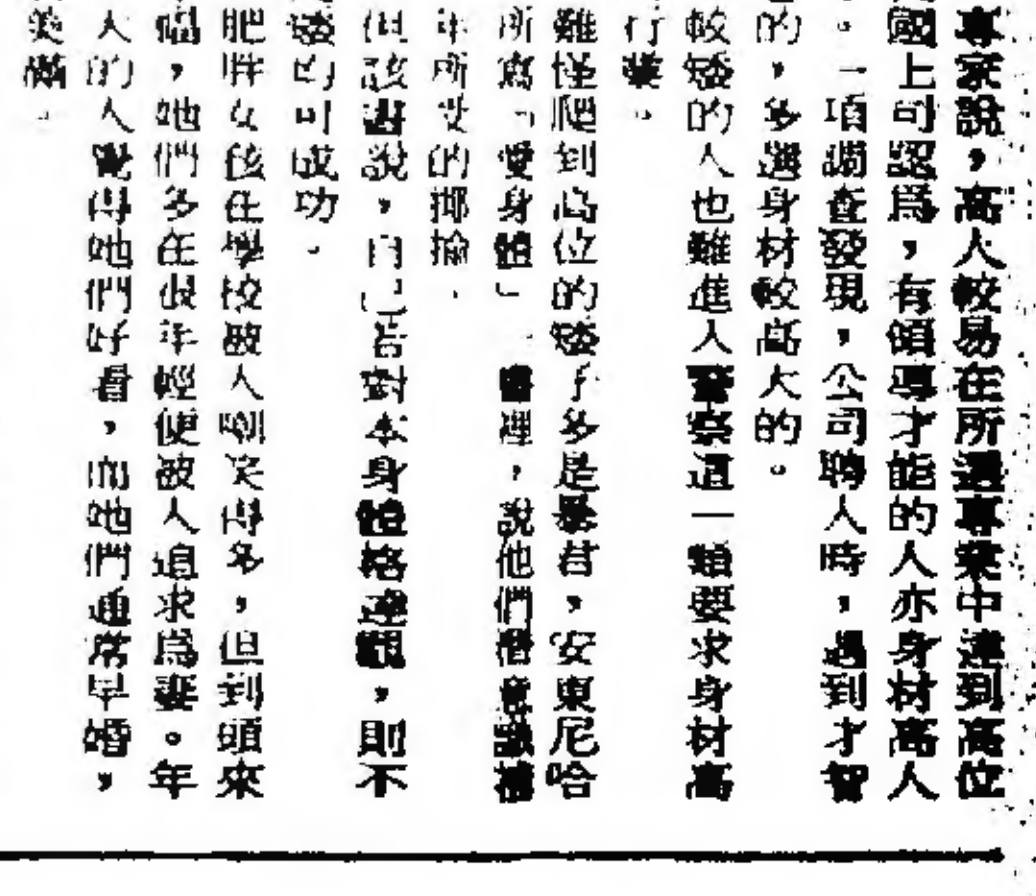 專家說，高人較易在所選專業中達到高位
國上司認爲，有領導才能的人亦身材高人
。一項調查發現，公司聘人時，遇到才智
的，多選身材較高大的。
較矮的人也難進入警察這一類要求身材高
行業。
難怪爬到高位的矮子多是暴君，安東尼哈
所寫「愛身體」一書裡，說他們潛意識補
年所受的揶揄。
但該書說，自己若對本身體格達觀，則不
矮的可成功。
肥胖女孩在學校被人嘲笑得多，但到頭來
福，她們多在很年輕便被人追求爲妻。年
大的人覺得她們好看，而她們通常早婚，
美滿。